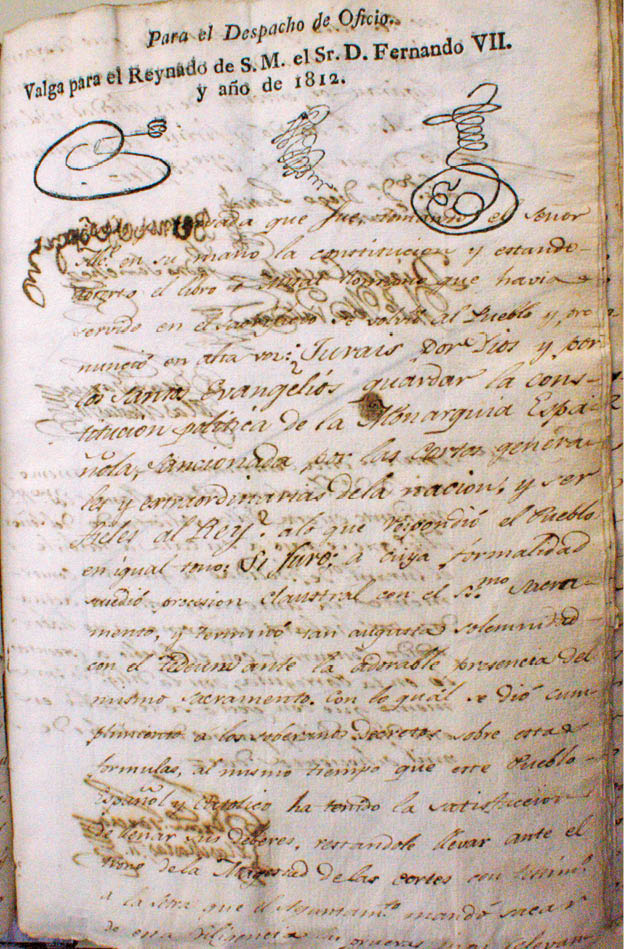 Para el Despacho de Oficio.
Valga para el Reynado de S. M. el Sr. D. Fernando VII.
y año de 1812.
que fue, tomando el Señor
en su mano la constitucion y estando
abierto el libro Misal Romano que havia
servido en el sacrificio se volvió al Pueblo y pro
nunció en alta voz: Jurais por Dios y por
los Santos Evangelios guardar la cons-
titucion politica de la Monarquia Espa-
ñola, sancionada por las Cortes genera-
les y extraordinarias de la nacion, y ser
fieles al Rey? a lo que respondió el Pueblo
en igual tono: Si Juro: a cuya formalidad
sucedió procesion Claustral con el S.mo Sacra-
mento, y terminó tan augusta solemnidad
con el Tedeum ante la adorable presencia del
mismo sacramento. con lo qual se dió cum-
plimiento a los soberanos Decretos sobre estas
formulas, al mismo tiempo que este Pueblo
Español y Catolico ha tenido la satisfaccion
de llenar sus deberes, restandole llevar ante el
de la Magestad de las cortes con
a la letra que el Ayuntam.to mandó sacar
de esta diligencia